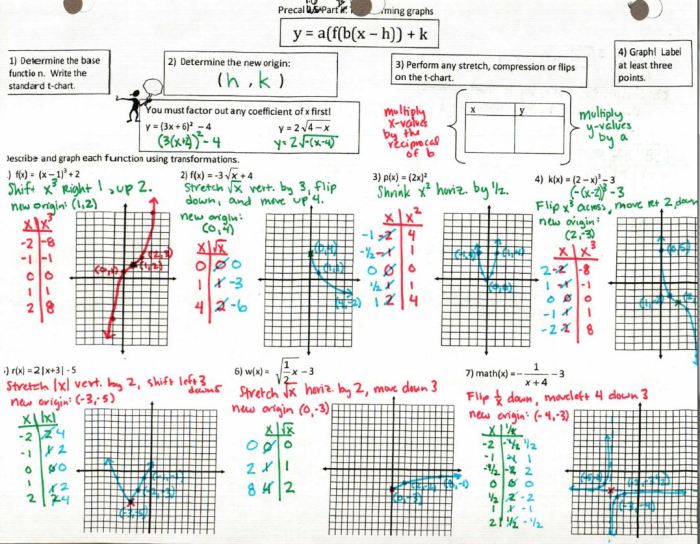 Precal
ming graphs
y = a(f(b(x − h)) + k
1) Determine the base
function. Write the
standard t-chart.
2) Determine the new origin:
(h, k)
3) Perform any stretch, compression or flips
on the t-chart.
4) Graph! Label
at least three
points.
You must factor out any coefficient of x first!
y = (3x + 6)² − 4
(3(x+2))² − 4
y = 2√4 − x
y = 2√-(x-4)
multiply
x-values
by the
reciprocal
of b
x y
multiply
y-values
by a
Describe and graph each function using transformations.
.) f(x) = (x − 1)³ + 2
Shift x³ Right 1, up 2.
new origin: (1,2)
x x³
-2 -8
-1 -1
0 0
1 1
2 8
2) f(x) = -3√x + 4
Stretch √x vert. by 3, flip
down, and move up 4.
new origin:
(0,4)
x √x
0 0 0
1 1 -3
4 2 -6
3) p(x) = (2x)²
Shrink x² horiz. by 1/2.
x x²
-1 -2 4
-1/2 -1 1
0 0 0
1/2 1 1
1 2 4
4) k(x) = (2 − x)³ − 3
(-(x-2))³ - 3
Flip x³ across, move rt 2, down
new origin:
(2,-3)
x x³
2 -2 -8
1 -1 -1
0 0 0
-1 1 1
-2 2 8
.) r(x) = 2|x+3| - 5
Stretch |x| vert. by 2, shift left 3
down 5
new origin: (-3,-5)
x |x|
-2 2 4
-1 1 2
0 0 0
1 1 2
2 2 4
6) w(x) = √1/2 x − 3
Stretch √x horiz. by 2, move down 3
new origin (0,-3)
x √x
0 0 0
2 1 1
8 4 2
7) math(x) = − 1/x + 4 − 3
Flip 1/x down, move left 4 down 3
new origin: (-4,-3)
x 1/x
-2 -1/2 1/2
-1 -1 1
-1/2 -2 2
0 0 0
1/2 2 -2
1 1 -1
2 1/2 -1/2